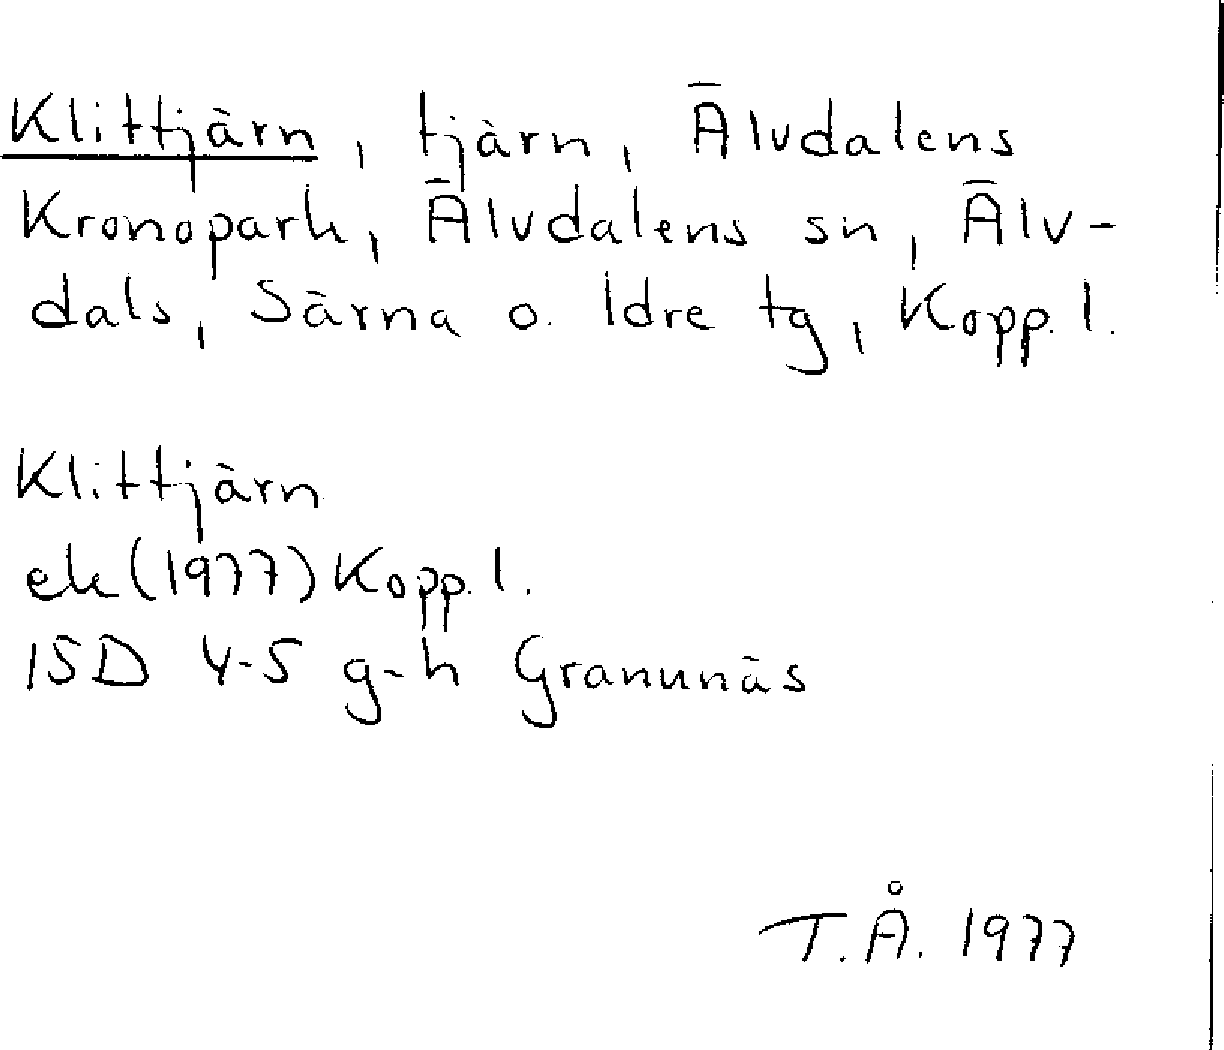 Klittjärn, tjärn, Älvdalens
Kronopark, Älvdalens sn, Älv-
dals, Särna o. Idre tg, Kopp. l.
Klittjärn
ek (1977) Kopp. l.
15D 4-5 g-h Granunäs
T.Å. 1977